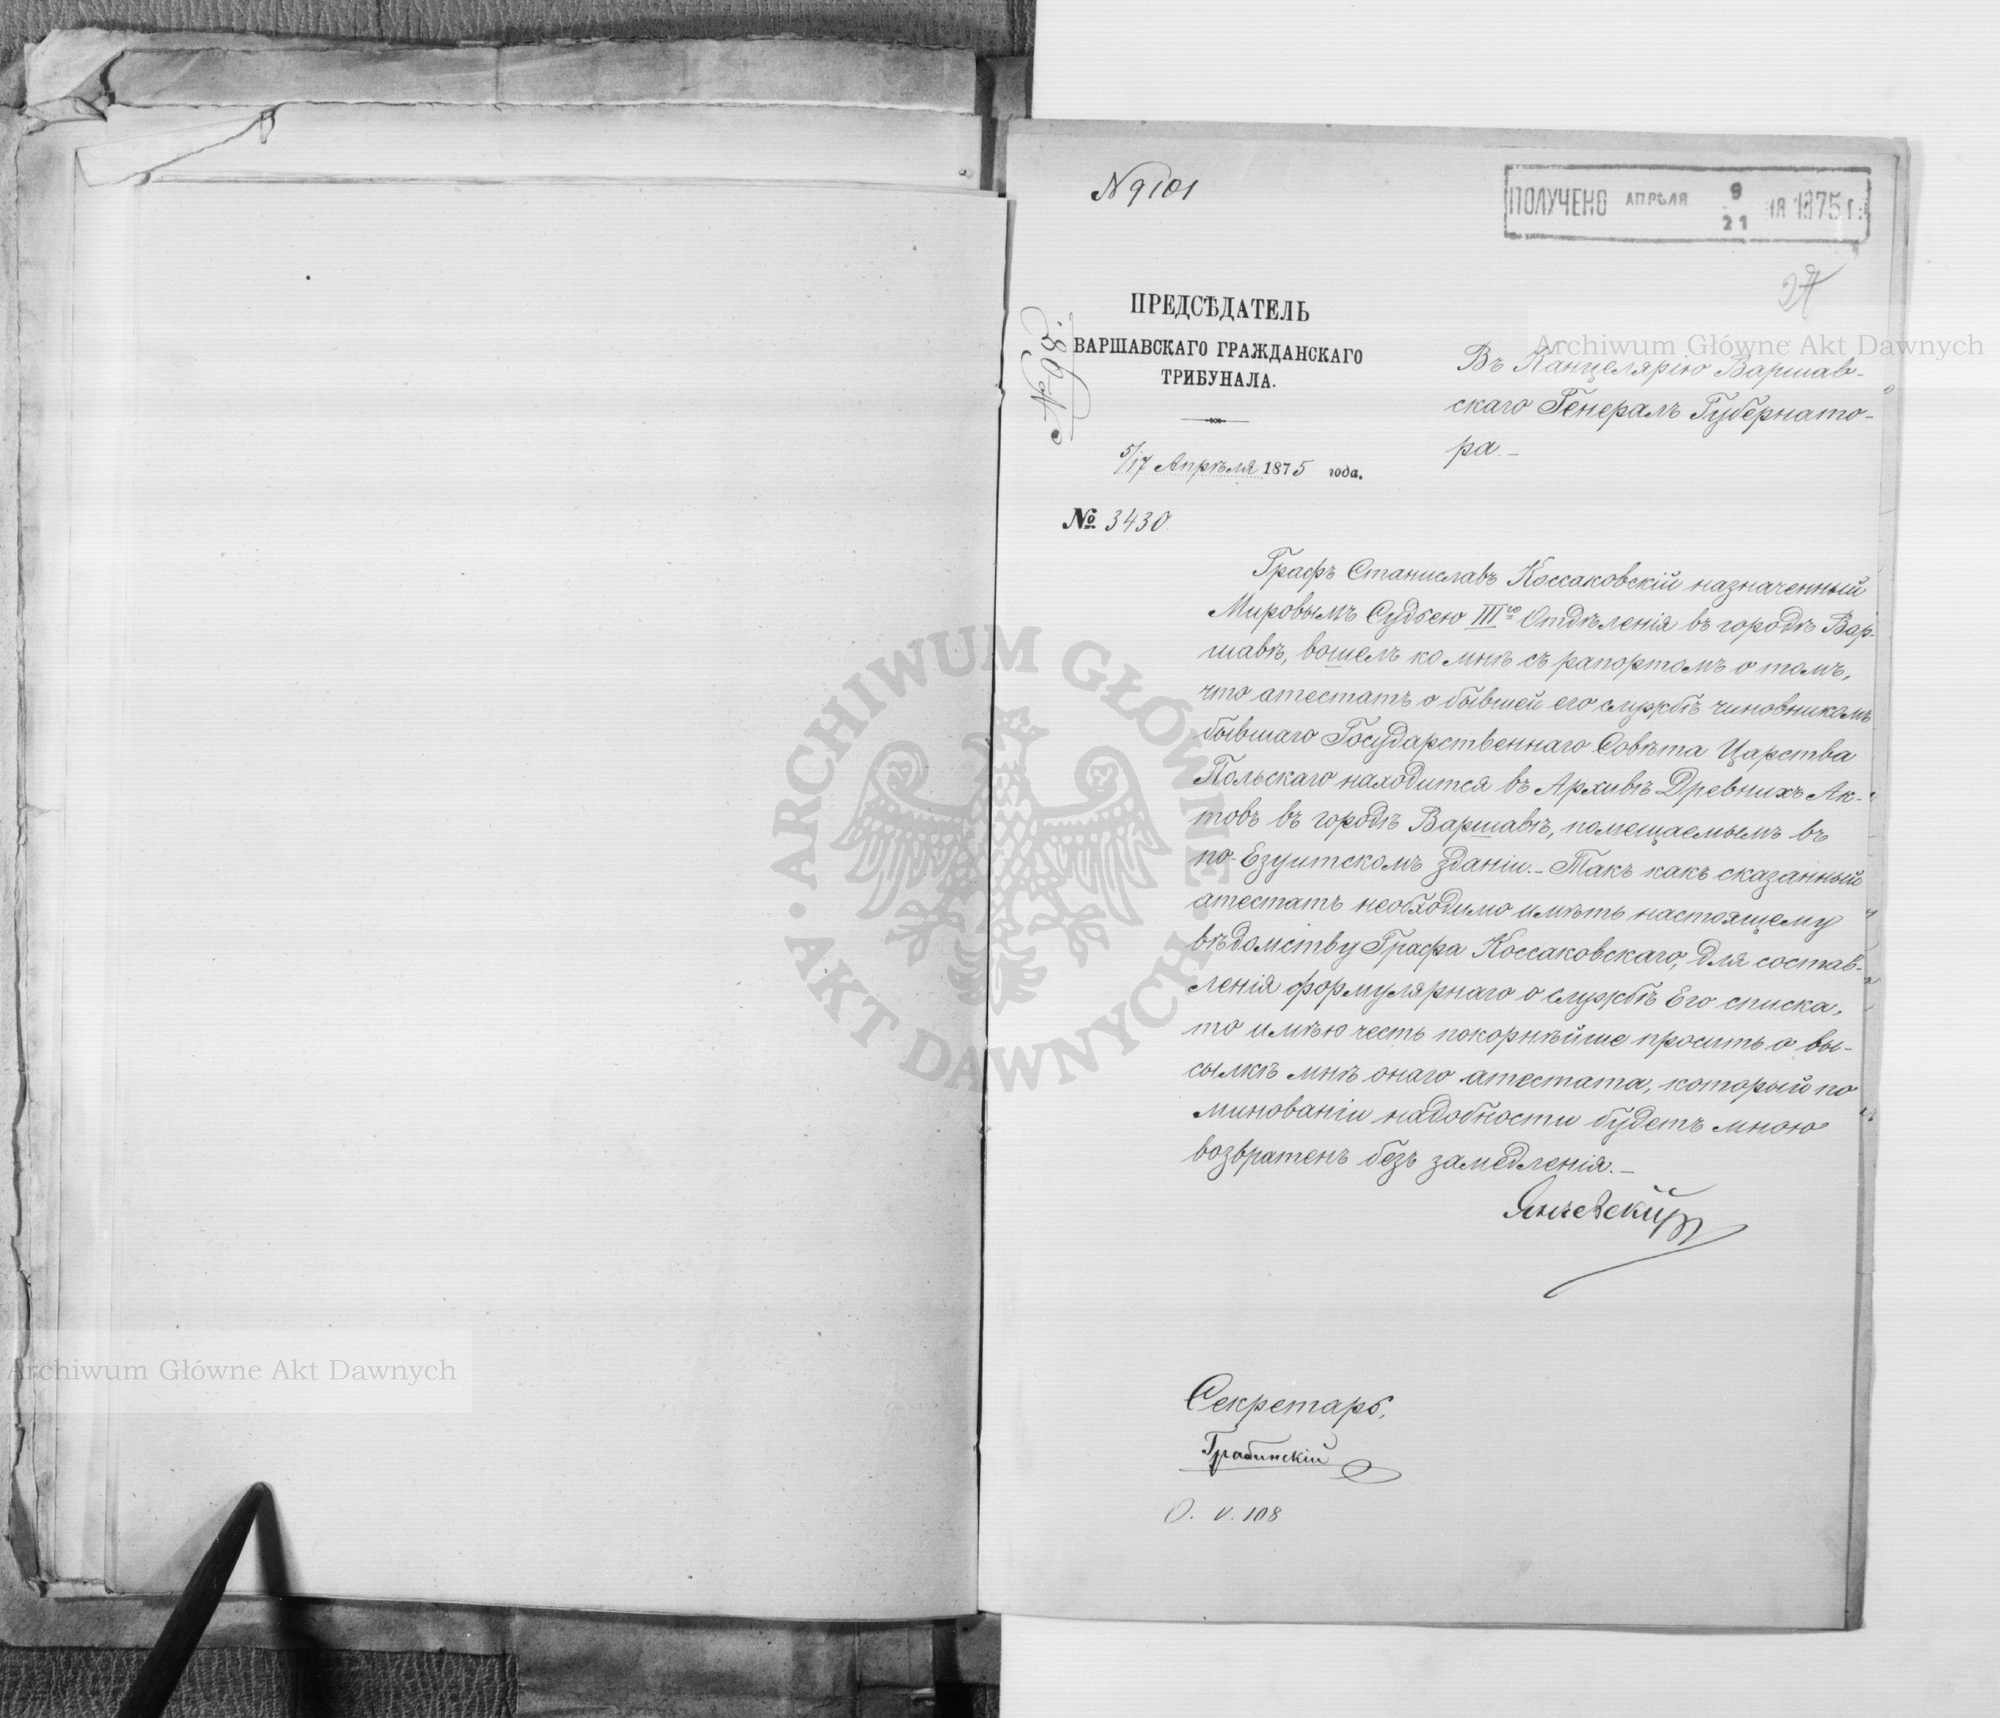 N 9101
ПОЛУЧЕНО АПРѢЛЯ 9/21 1875 г.
27
ПРЕДСѢДАТЕЛЬ
ВАРШАВСКАГО ГРАЖДАНСКАГО
ТРИБУНАЛА.
5/17 Апрѣля 1875 года.
№ 3430.
Въ Канцелярію Варшав-
скаго Генералъ Губернато-
ра.-
Графъ Станиславъ Коссаковскій назначенный
Мировымъ Судьею III го Отдѣленія въ городѣ Вар-
шавѣ, вошелъ ко мнѣ съ рапортомъ о томъ,
что атестатъ о бывшей его службѣ чиновникомъ
бывшаго Государственнаго Совѣта Царства
Польскаго находится въ Архивѣ Древнихъ Ак-
товъ въ городѣ Варшавѣ, помещаемымъ въ
по-Езуитскомъ зданіи.- Такъ какъ сказанный
атестатъ необходимо имѣть настоящему
вѣдомству Графа Коссаковскаго, для состав-
ленія формулярнаго о службѣ Его списка,
то имѣю честь покорнѣйше просить о вы-
сылкѣ мнѣ онаго атестата, который по
минованіи надобности будетъ мною
возвратенъ безъ замедленія.-
Секретарь,
Грабинскій
О. v. 108
Archiwum Główne Akt Dawnych
Archiwum Główne Akt Dawnych
ARCHIWUM GŁÓWNE · AKT DAWNYCH ·